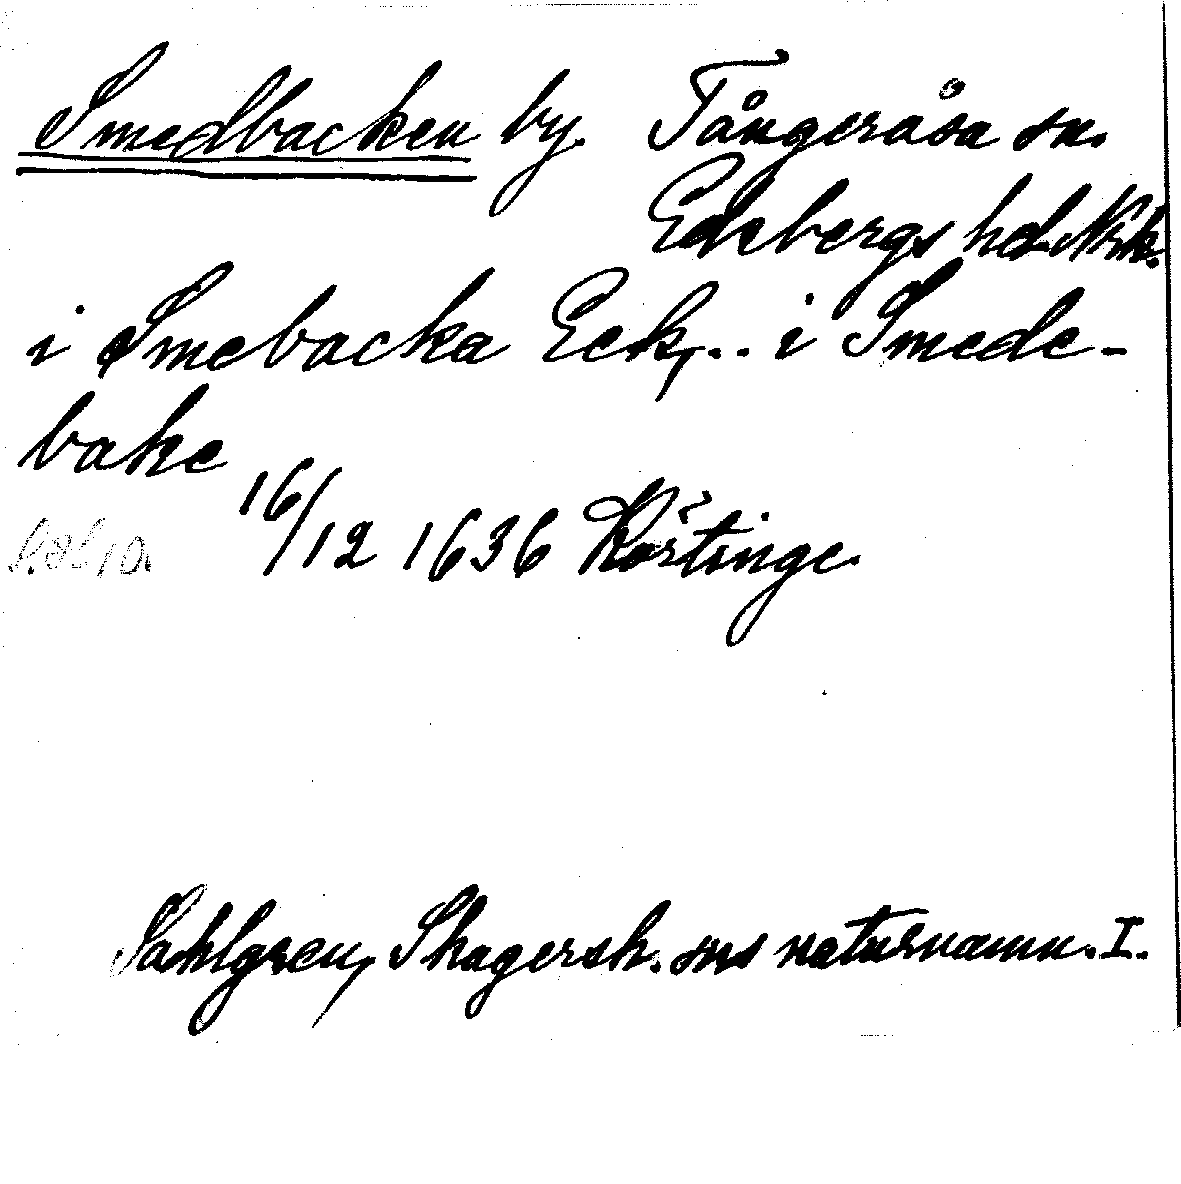 Smedbacken by. Tångeråsa sn.
Edsbergs hd. Nrk.
i Smebacka Eek, .. i Smede-
bake
16/12 1636 Körtinge.
Sahlgren, Skagersh. sns naturnamn. I.